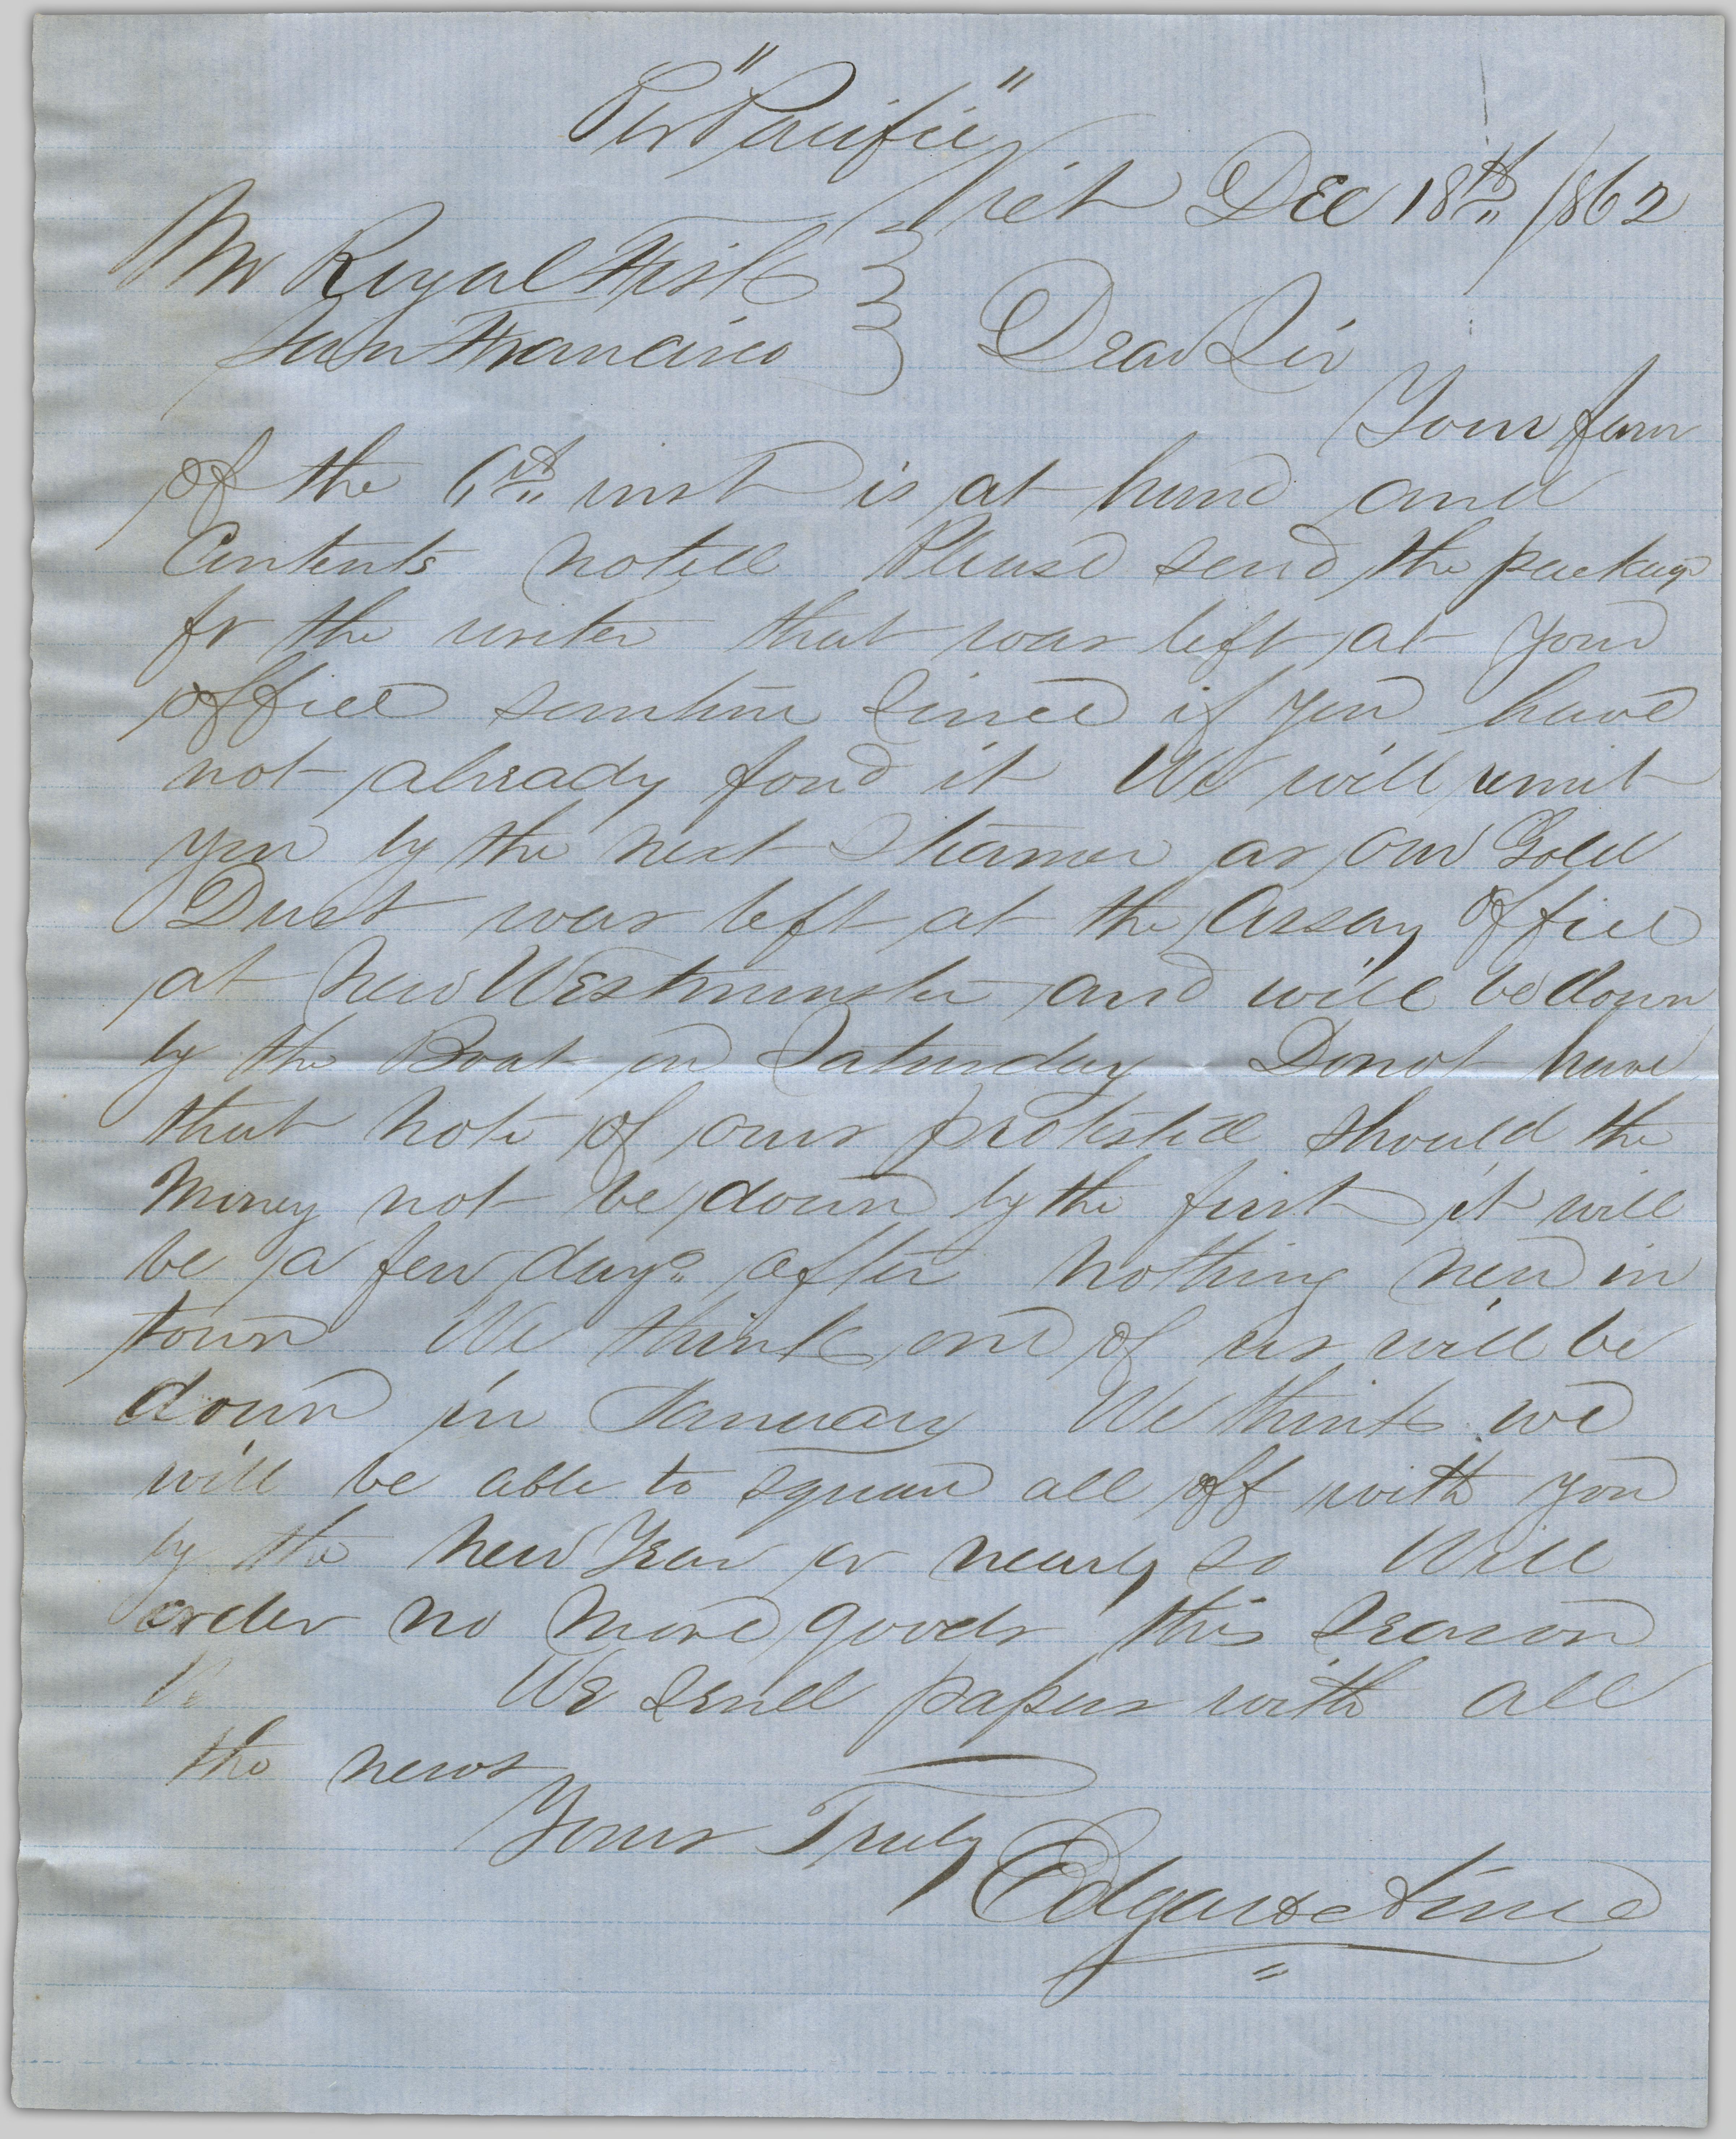 Per "Pacific"
Vict Dec 18th /862
Mr Royal Fisk
San Francisco } Dear Sir
Your favr
of the 6th inst is at hand and
Contents noted Please send the package
fr the writer that was left at your
office somtime since if you have
not already fond it We will remit
you by the next Steamer as our Gold
Dust was left at the Assay office
at New Westminster and will be down
by the Boat on Saturday Do not have
that note of ours protested should the
Money not be down by the first it will
be a few days after nothing new in
town We think one of us will be
down in January We think we
will be able to square all off with you
by the New Year or nearly so Will
order no more goods this season
We send papers with all
the news
Yours Truly
Edgar &